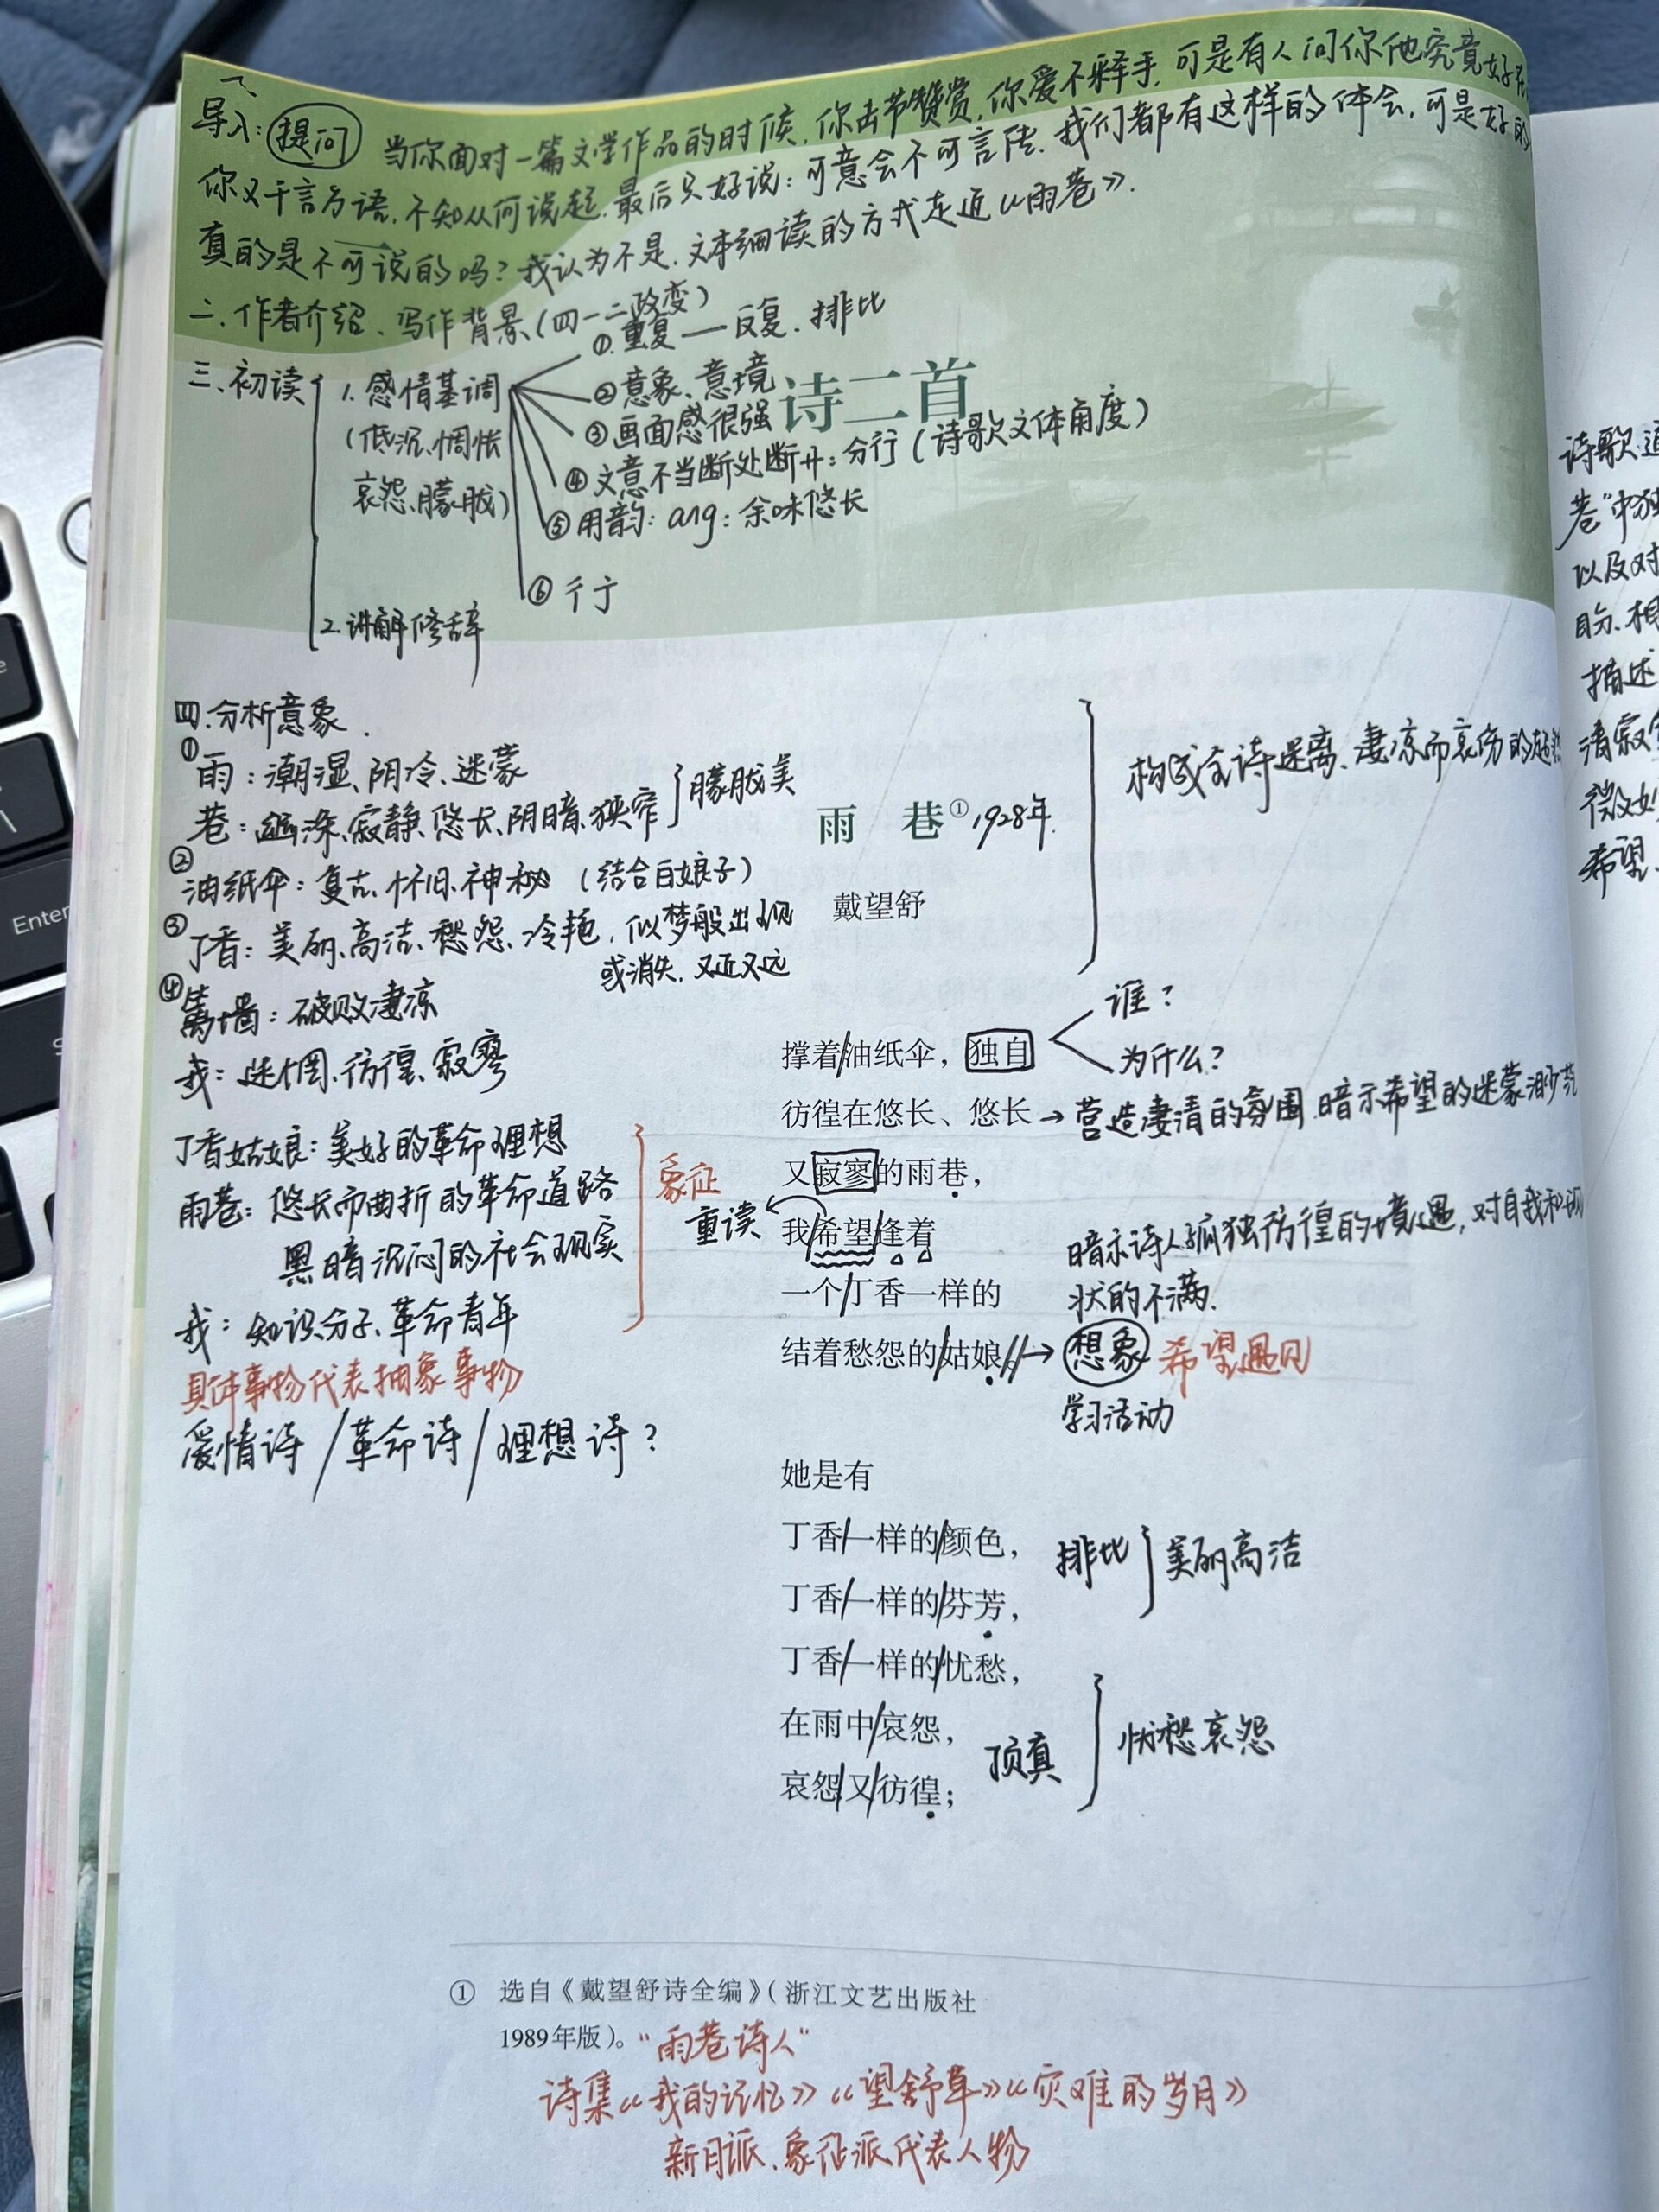 一、
导入：提问 当你面对一篇文学作品的时候，你击节赞赏，你爱不释手，可是有人问你他究竟好在
你又千言万语，不知从何说起，最后只好说：可意会不可言传。我们都有这样的体会，可是好的
真的是不可说的吗？我认为不是，文本细读的方式走近《雨巷》.
二.作者介绍、写作背景（四一二政变）
三、初读
1.感情基调
（低沉、惆怅
哀怨、朦胧）
①.重复——反复、排比
②意象、意境
③画面感很强
④文意不当断处断开：分行（诗歌文体角度）
⑤用韵：ang：余味悠长
⑥彳亍
2.讲解修辞
诗二首
四.分析意象.
①雨：潮湿、阴冷、迷蒙
巷：幽深、寂静、悠长、阴暗、狭窄
朦胧美
②油纸伞：复古、怀旧、神秘（结合白娘子）
③丁香：美丽、高洁、愁怨、冷艳，似梦般出现
或消失，又近又远
④篱墙：破败凄凉
我：迷惘、彷徨、寂寥
丁香姑娘：美好的革命理想
雨巷：悠长而曲折的革命道路
黑暗沉闷的社会现实
我：知识分子、革命青年
象征
具体事物代表抽象事物
爱情诗/革命诗/理想诗？
雨 巷① 1928年.
戴望舒
构成全诗迷离、凄凉而哀伤的
撑着/油纸伞，独自
谁？
为什么？
彷徨在悠长、悠长→营造凄清的氛围，暗示希望的迷蒙渺茫
又寂寥的雨巷，
重读
我/希望/逢着
暗示诗人孤独彷徨的境遇，对自我和现
状的不满.
一个/丁香一样的
结着愁怨的/姑娘。//→想象 希望遇见
学习活动
她是有
丁香/一样的/颜色，
丁香/一样的/芬芳，
排比 美丽高洁
丁香/一样的/忧愁，
在雨中/哀怨，
哀怨/又/彷徨；
顶真 忧愁哀怨
① 选自《戴望舒诗全编》（浙江文艺出版社
1989年版）。“雨巷诗人”
诗集《我的记忆》《望舒草》《灾难的岁月》
新月派、象征派代表人物
诗歌通
巷”中独
以及对
盼、相
描述
清寂
微妙
希望、
Enter